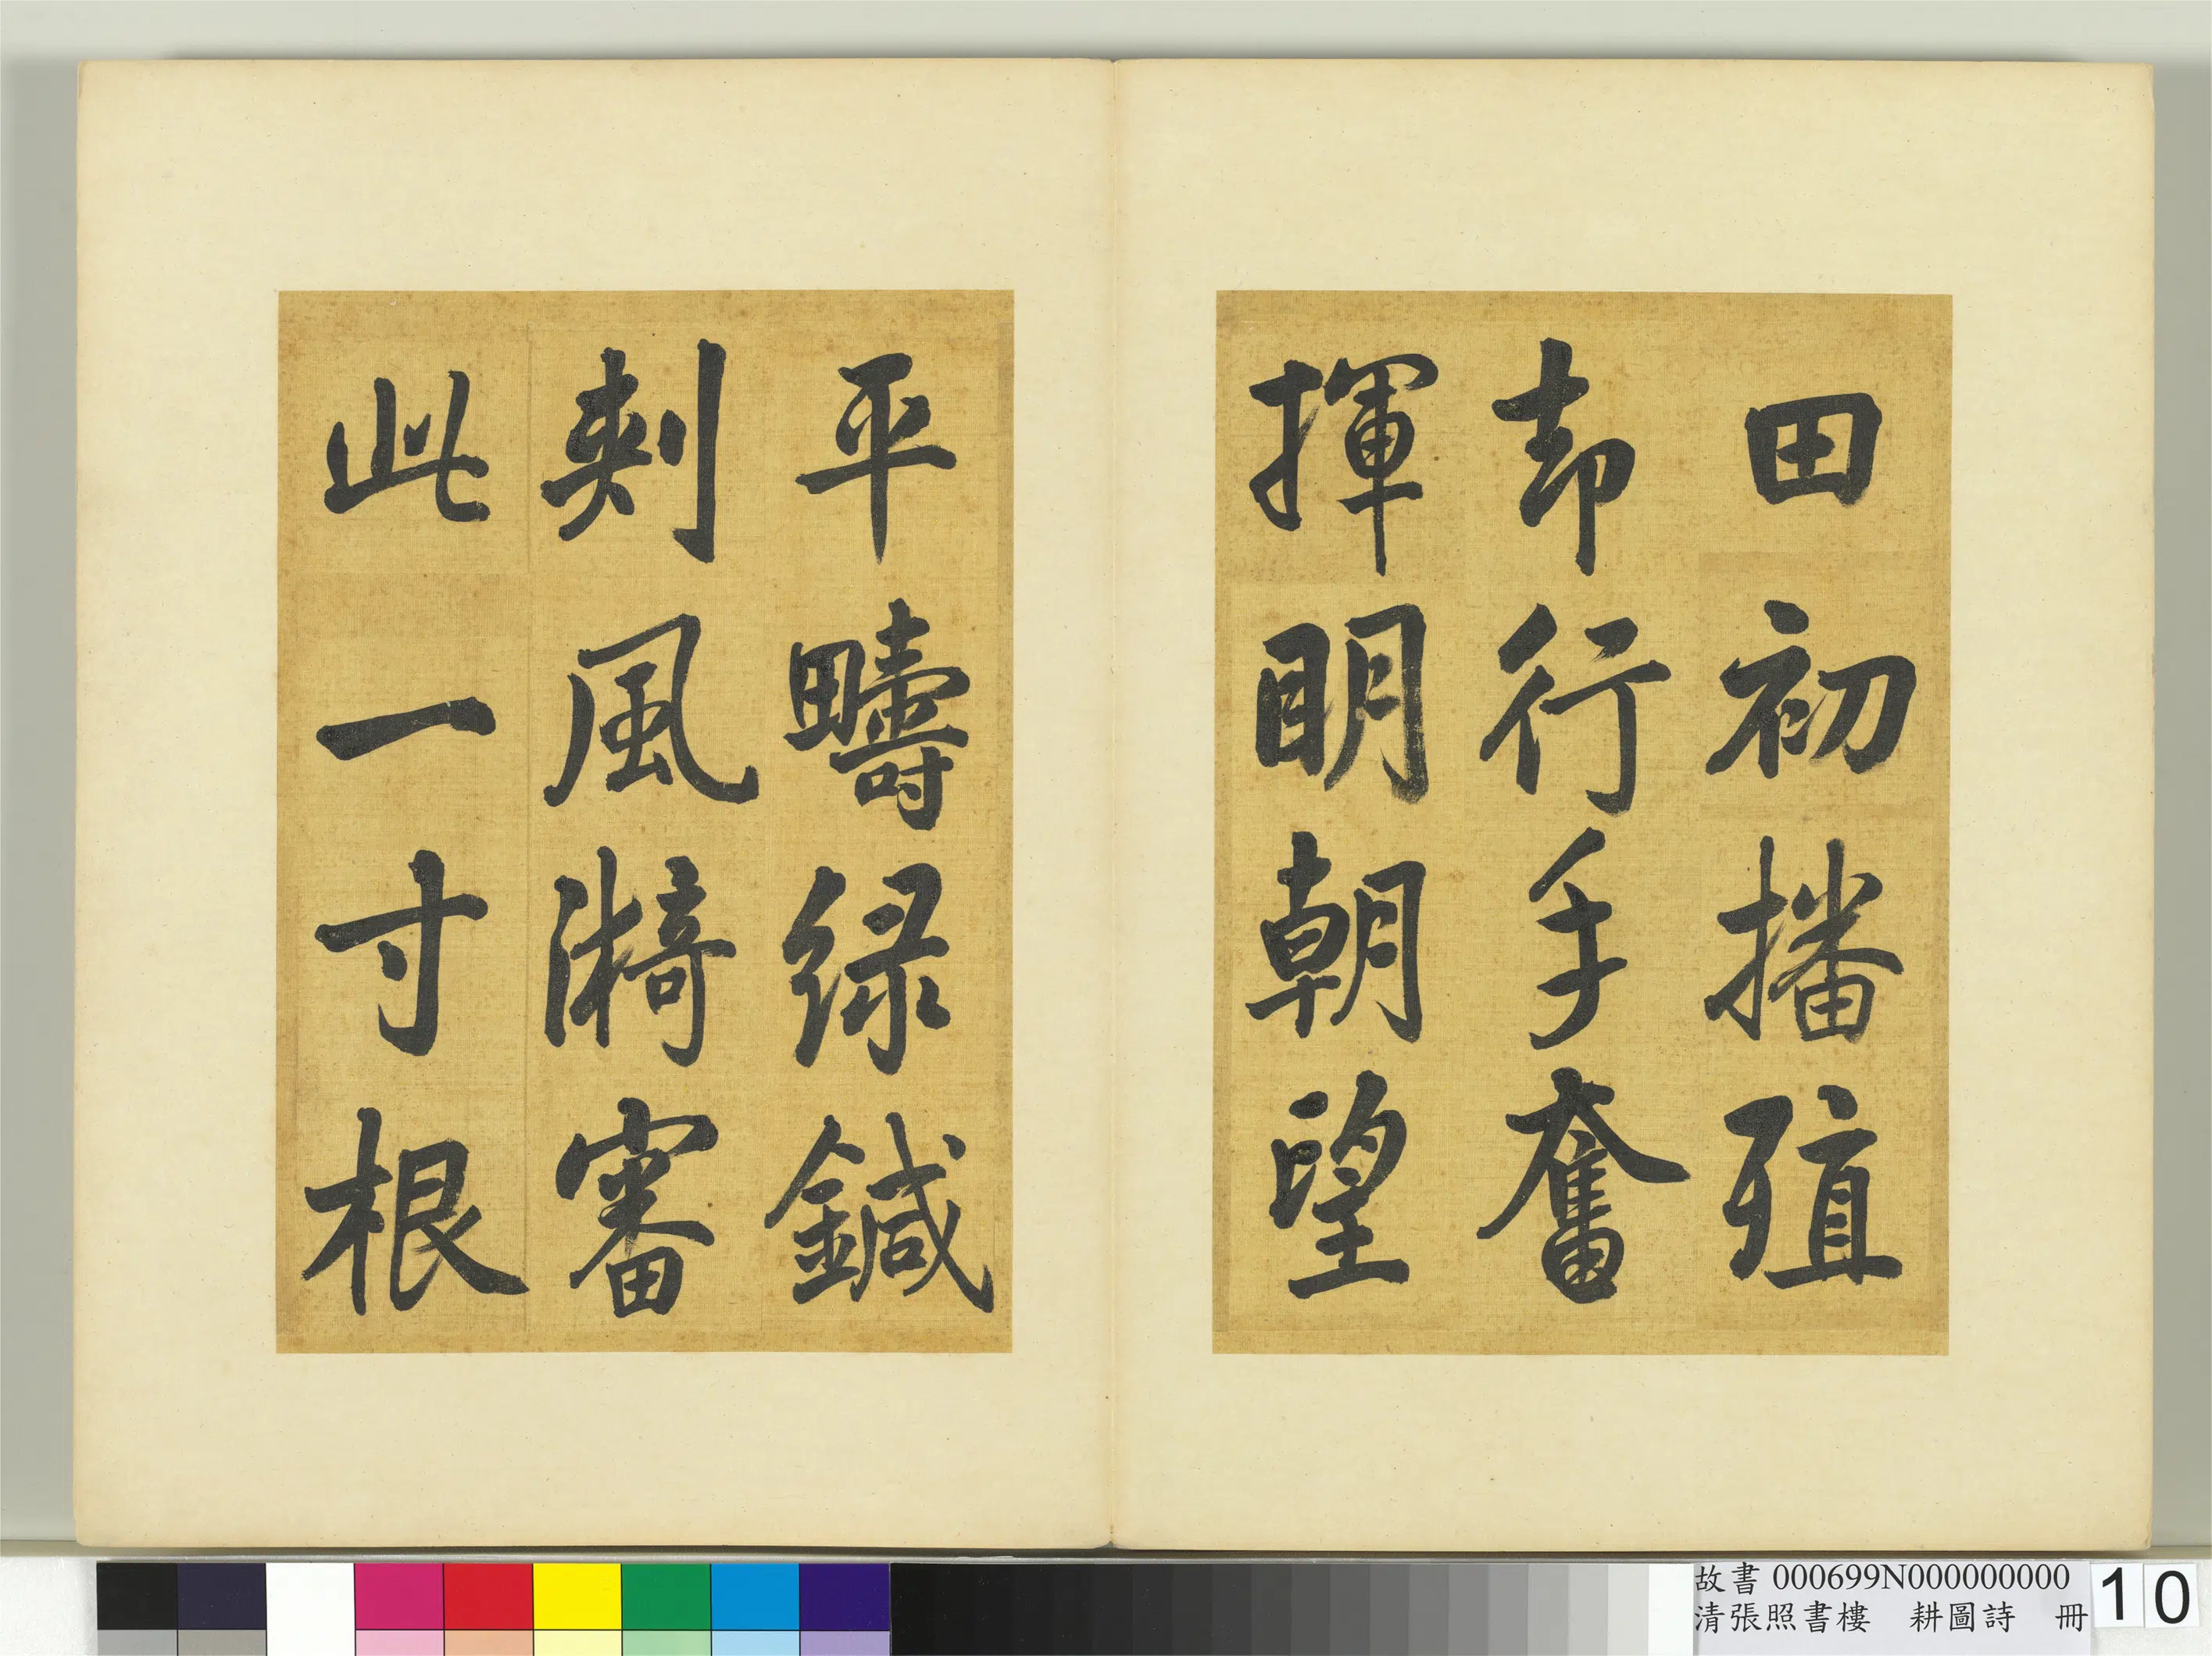 田初播殖
却行手奮
揮明朝望
平疇綠鍼
刺風漪審
此一寸根
故書 000699N000000000
清張照書樓 耕圖詩 冊
10